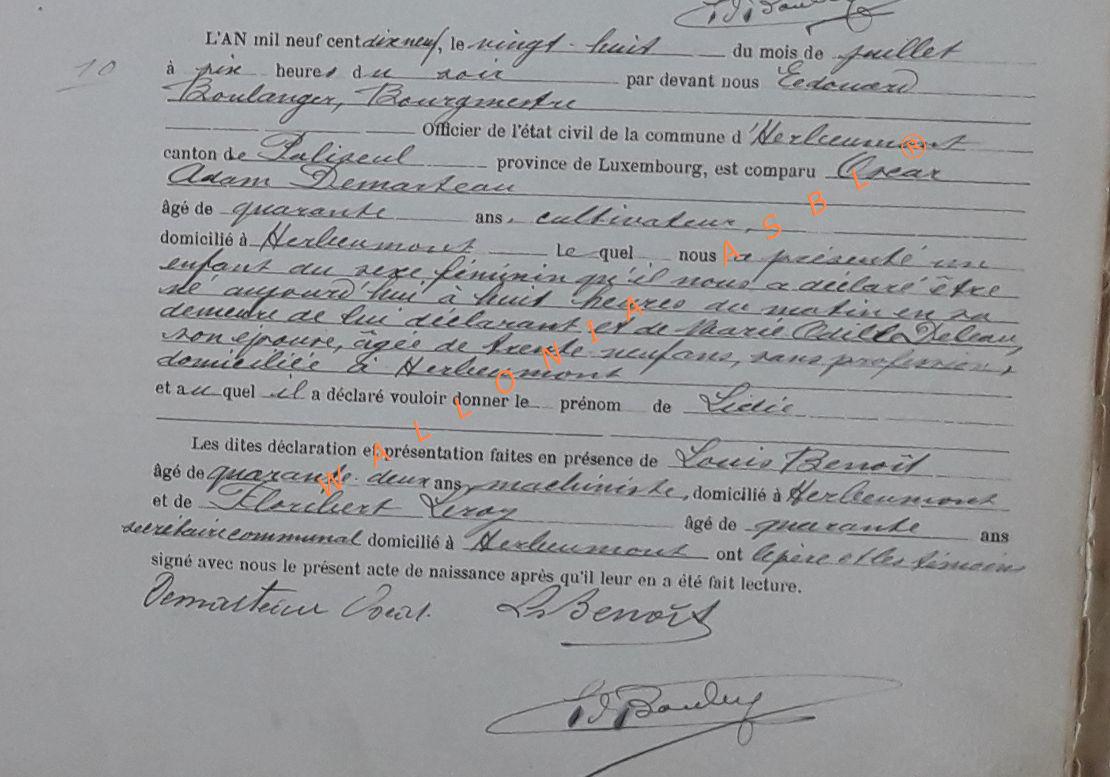 10
L'AN mil neuf cent dix neuf, le vingt-huit du mois de juillet
à six heures du soir par devant nous Edouard
Boulanger, Bourgmestre
Officier de l'état civil de la commune d'Herbeumont
canton de Paliseul province de Luxembourg, est comparu Oscar
Adam Demarteau
âgé de quarante ans, cultivateur,
domicilié à Herbeumont Le quel nous a présenté un
enfant du sexe féminin qu'il nous a déclaré être
né aujourd'hui à huit heures du matin en sa
demeure de lui déclarant et de Marie Deleau,
son épouse, âgée de trente-neuf ans, sans profession,
domiciliée à Herbeumont
et auquel il a déclaré vouloir donner le prénom de Lidie
Les dites déclaration et présentation faites en présence de Louis Benoît
âgé de quarante-deux ans, machiniste, domicilié à Herbeumont
et de Floribert Leroy âgé de quarante ans
secrétaire communal domicilié à Herbeumont ont le père et les témoins
signé avec nous le présent acte de naissance après qu'il leur en a été fait lecture.
Demarteau Oscar. Ls Benoît
WALLONIA ASBL ®